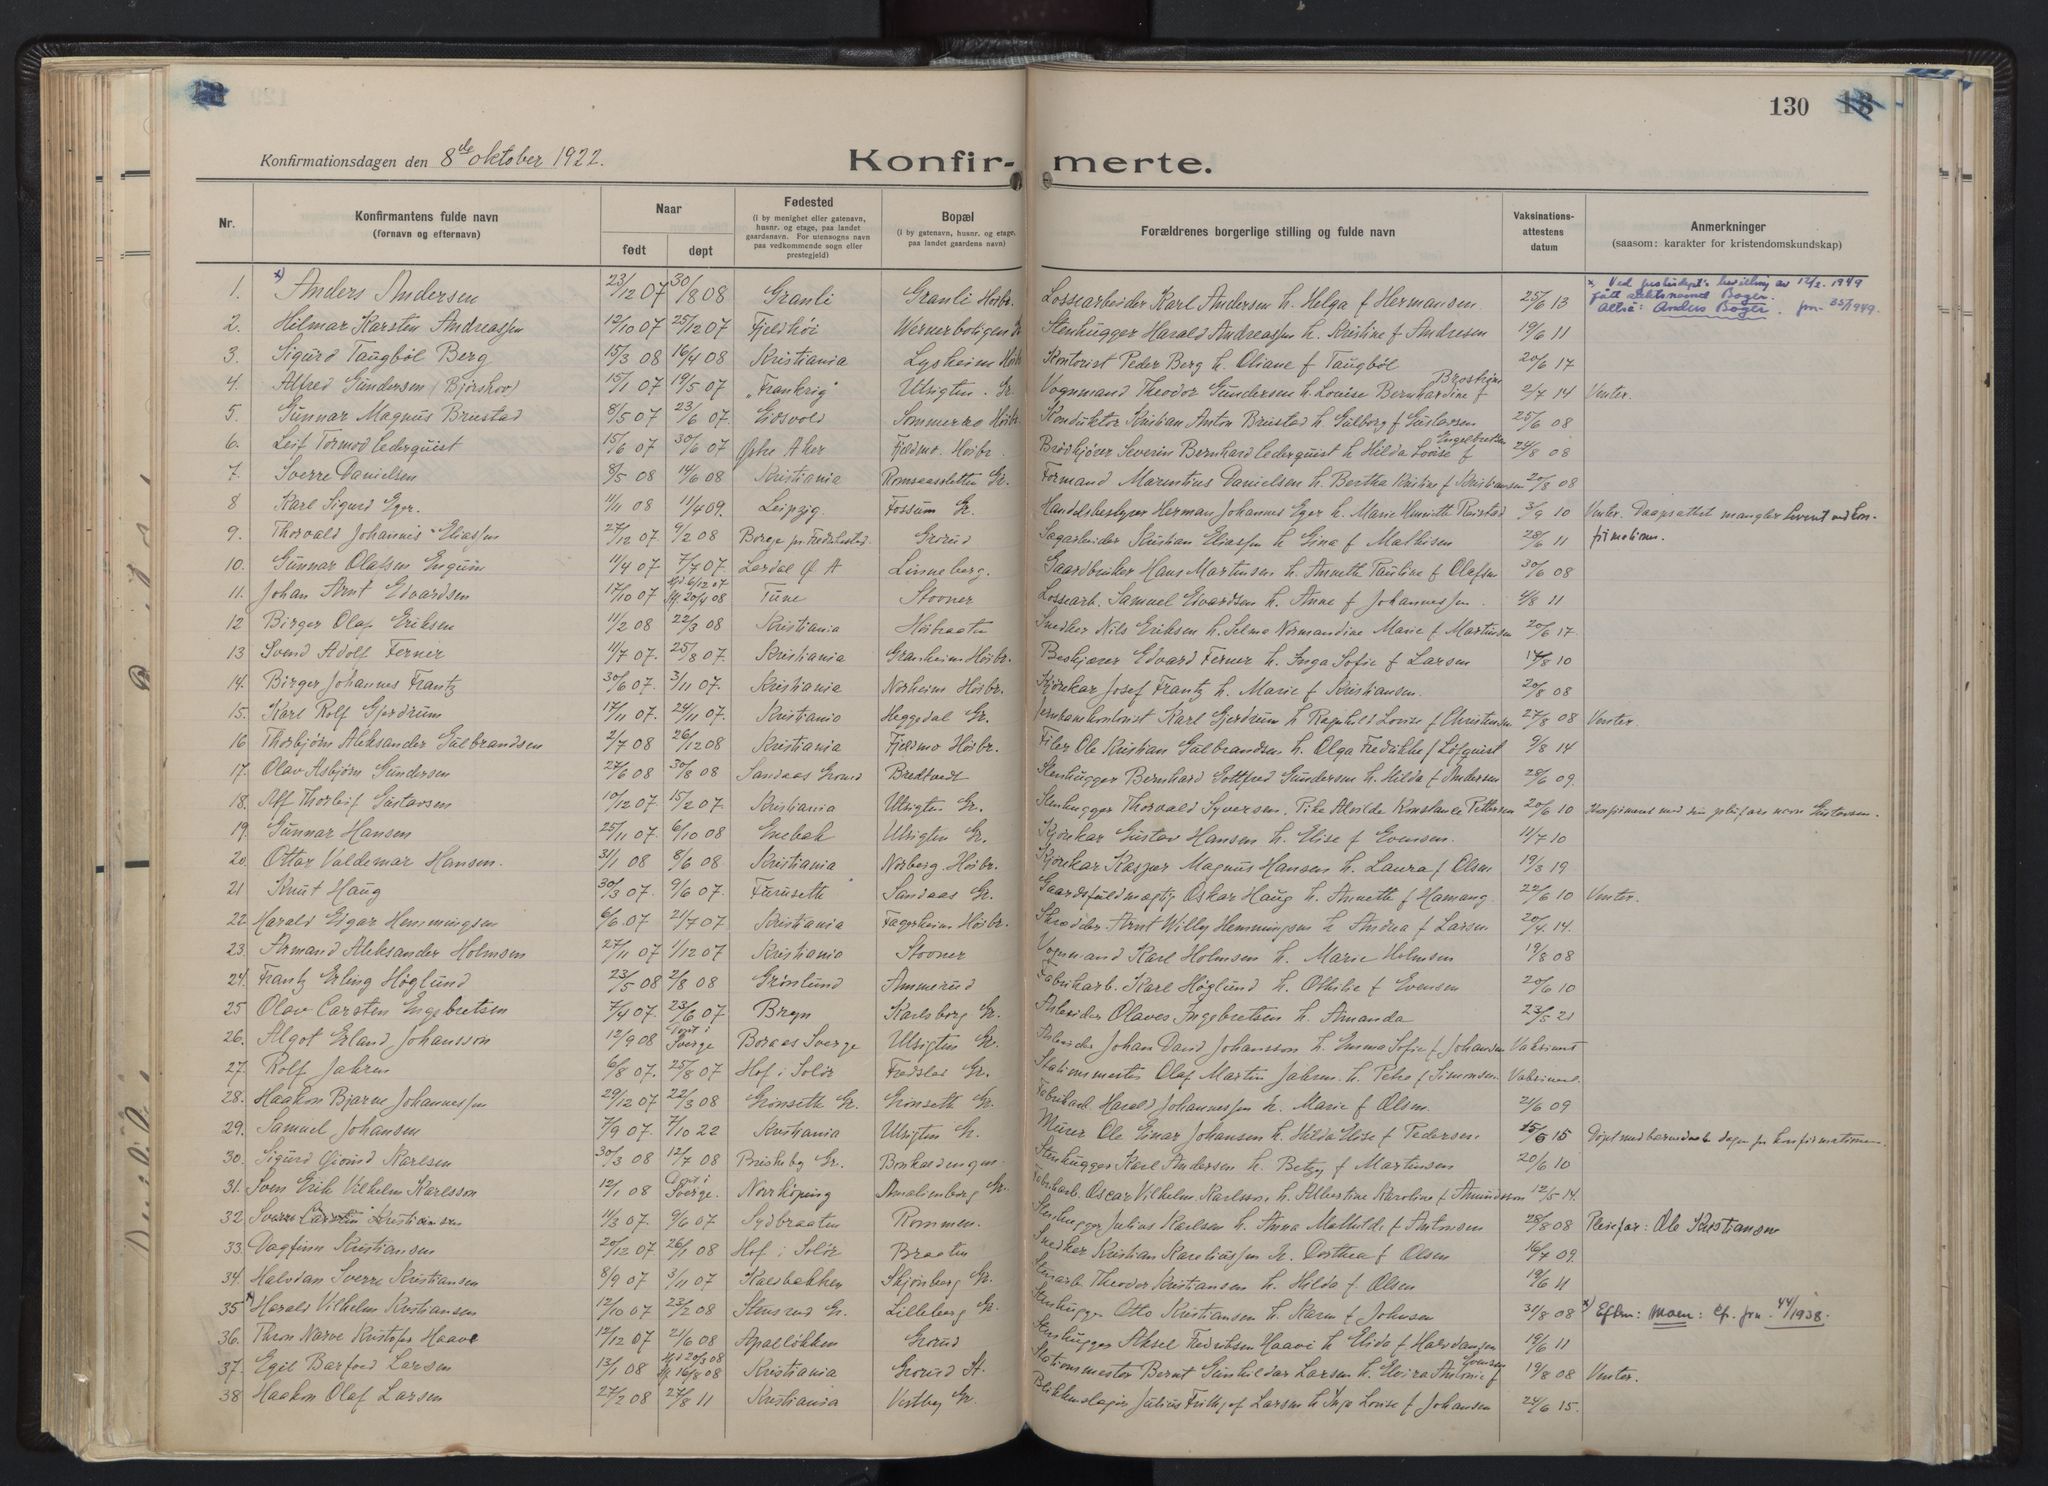 130
Konfirmationsdagen den 8de oktober 1922.
Konfir- merte.
Nr. Konfirmantens fulde navn (fornavn og efternavn) Naar født døpt Fødested (i by menighet eller gatenavn, husnr. og etage, paa landet gaardsnavn. For utensogns navn paa vedkommende sogn eller prestegjeld) Bopæl (i by gatenavn, husnr. og etage, paa landet gaardens navn) Forældrenes borgerlige stilling og fulde navn Vaksinationsattestens datum Anmerkninger (saasom: karakter for kristendomskundskap)
1. x) Anders Andersen 23/12 07 30/8 08 Granli Granli Høibr. Lossearbeider Karl Andersen h. Helga f Hermansen 25/6 13 x, Ved bevilling av 12/2. 1949 fått Boger. Altså: Anders Boger.
2. Hilmar Karsten Andreassen 12/10 07 25/12 07 Fjeldhøi Stenhugger Harald Andreassen h. Kristine f Andresen 19/6 11
3. Sigurd Taugbøl Berg 15/3 08 16/4 08 Kristiania Lysheim Høibr Kontorist Peder Berg h. Oliane f Taugbøl 20/6 17
4. Alfred Gundersen (Bjørskov) 15/1 07 19/5 07 "Frankrig" Utsigten. Gr. Vognmand Theodor Gundersen h. Lovise Bernhardine f 2/7 14 Venter.
5. Gunnar Magnus Brustad 8/5 07 23/6 07. Eidsvold Sommerro Høibr. Konduktør Kristian Anton Brustad h. Gulborg f Gustavsen 25/6 08
6. Leif Tormod Cederquist 15/6 07 30/6 07 Østre Aker Fjeldmo. Høibr. Brødkjører Severin Bernhard Cederquist h Hilda Lovise f Engelbretsen 24/8 08
7. Sverre Danielsen 8/5 08 14/6 08 Kristiania Romsaassletten Gr. Formand Marentius Danielsen h. Bertha Kristine f Kristiansen 20/8 08
8 Karl Sigurd Eger. 11/11 08 11/4 09. Leipzig. Fossum Gr. Handelsbestyrer Herman Johannes Eger h. Marie Henriette Reistad 3/9 10 Venter. Daapsattest mangler
9. Thorvald Johannes Eliassen 27/12 07. 9/2 08 Borge pr. Fredrikstad. Grorud Sagarbeider Kristian Eliassen h Gina f Mathisen 28/6 11 firmationen.
10. Gunnar Olafsen Engum 11/4 07 7/7 07. Lerdal Ø A Linneberg. Gaardbruker Hans Martinsen h. Anneth Pauline f Olafsen 30/6 08
11. Johan Arnt Edvardsen 17/10 07 Hjd 6/12 07 Kj. 20/4 08 Tune Stovner Lossearb. Samuel Edvardsen h. Anne f Johannessen. 4/8 11
12 Birger Olaf Eriksen 11/2 08 22/3 08 Kristiania Høibraaten Snedker Nils Eriksen h. Selma Normandine Marie f Martinsen 20/6 17.
13 Svend Adolf Ferner 11/7 07. 25/8 07. Kristiania Granheim Høibr. Beskjærer Edvard Ferner h. Inga Sofie f Larsen 14/8 10
14. Birger Johannes Frantz 30/6 07. 3/11 07. Kristiania Norheim Høibr. Kjørekar Josef Frantz h. Marie f Kristiansen. 20/8 08
15. Karl Rolf Gjerdrum 17/11 07. 24/11 07. Kristiania Heggedal Gr. Jernbanekontorist Karl Gjerdrum h Ragnhild Lovise f Christensen 27/8 08 Venter.
16 Thorbjørn Aleksander Gulbrandsen 2/7 08 26/12 08 Kristiania Fjeldmo Høibr. Filer Ole Kristian Gulbrandsen h. Olga Fredrikke f Löfquist 9/8 14
17. Olav Asbjørn Gundersen 27/6 08 30/8 08 Sandaas Grorud Bredtvedt Stenhugger Bernhard Gottfred Gundersen h. Hilda f Andersen 28/6 09.
18. Alf Thorleif Gustavsen 10/12 07. 15/2 07. Kristiania Utsigten Gr. Stenhugger Thorvald Syversen. Pike Alvilde Konstanse Pettersen 20/6 10 Konfirmeret med sin pleiefars navn Gustavsen.
19. Gunnar Hansen 25/11 07. 6/10 08 Enebak Utsigten Gr. Kjørekar Gustav Hansen h. Elise f Evensen. 11/7 10
20. Ottar Valdemar Hansen. 31/1 08 8/6 08 Kristiania Norberg Høibr. Kjørekar Kaspar Magnus Hansen h. Laura f Olsen 19/3 19
21 Knut Haug 30/3 07. 9/6 07. Furuseth Sandaas Gr. Gaardsfuldmægtig Oskar Haug h. Anneth f Hamang. 22/6 10 Venter.
22. Harald Edgar Hemmingsen 6/6 07. 21/7 07 Kristiania Fagerheim Høibr. Skrædder Arnt Willy Hemmingsen h Andrea f Larsen 20/4 14.
23. Armand Aleksander Holmsen 27/11 07 1/12 07 Kristiania Stovner Vognmand Karl Holmsen h. Marie Holmsen 19/8 08
24. Frantz Erling Höglund 23/5 08 2/8 08 Grönlund Ammerud Fabrikarb. Karl Höglund h. Othilie f Evensen 20/6 10
25 Olav Carsten Engebretsen 7/4 07. 23/6 07 Bryn Karlsborg Gr. Arbeider Olaves Ingebretsen h. Amanda 23/5 21
26. Algot Erland Johansson 12/9 08 Døpt i Sverge Boraas Sverge Utsigten Gr. Arbeider Johan David Johansson h. Emma Sofie f Johansen Vaksinert
27. Rolf Jahren 6/8 07. 25/8 07 Hof i Solør Fredslad Gr. Stationsmester Olaf Martin Jahren h. Petra f Simonsen. Vaksinert.
28. Haakon Bjarne Johannessen 29/12 07 22/3 08 Grönseth Gr. Grönseth Gr. Fabrikarb. Harald Johannessen h. Marie f Olsen. 21/6 09
29. Samuel Johansen 7/9 07. 7/10 22 Kristiania Utsigten Gr. Murer Ole Einar Johansen h. Hilda Elise f Pedersen. 25/6 15 Døpt med barnedaab dagen før konfirmationen.
30. Sigurd Øivind Karlsen 30/3 08 12/7 08 Brisheby Gr. Stenhugger Karl Andersen h. Betzy f Martinsen 20/6 10
31. Sven Erik Vilhelm Karlsson 12/1 08 Døpt i Sverge. Norrköping Amalienborg Gr. Fabrikarb. Oscar Vilhelm Karlsson h. Albertine Karoline f Amundsson 12/5 14.
32. Sverre Kristiansen 11/3 07. 9/6 07 Sydbraaten Rommen. Stenhugger Julius Karlsen h. Anna Mathilde f Antonsen 28/8 08 Pleiefar: Ole Kristiansen
33. Dagfinn Kristiansen 20/12 07. 26/1 08 Hof i Solør Braaten Snedker Kristian Kareliussen h. Dorthea f Olsen 16/7 09.
34. Halvdan Sverre Kristiansen 8/9 07 3/11 07 Kalbakken Skjönberg Gr. Stenarb. Theodor Kristiansen h. Hilda f Olsen 19/6 11
35 x) Harald Vilhelm Kristiansen 12/10 07 23/2 08 Stensrud Gr. Lilleberg Gr. Stenhugger Otto Kristiansen h. Karen f Johnsen 31/8 08 x) Eftn: Moen: cf. jrn. 44/1938.
36. Thron Narve Kristofer Haave 12/12 07 21/6 08 Apalløkken Grorud Stenhugger Aksel Fredriksen Haave h Elida f Halvdansen 19/6 11
37. Egil Barfoed Larsen 13/1 08 Hjd 20/3 08 Kj. 16/8 08 Kristiania Grorud St. Stationsmester Bernt Gunhildar Larsen h. Elvira Antonie f Evensen 19/8 08 Venter.
38 Haakon Olaf Larsen 27/2 08 27/8 11 Kristiania Vestby Gr. Blikkenslager Julius Frithjof Larsen h Inga Lovise f Johansen 24/6 15.